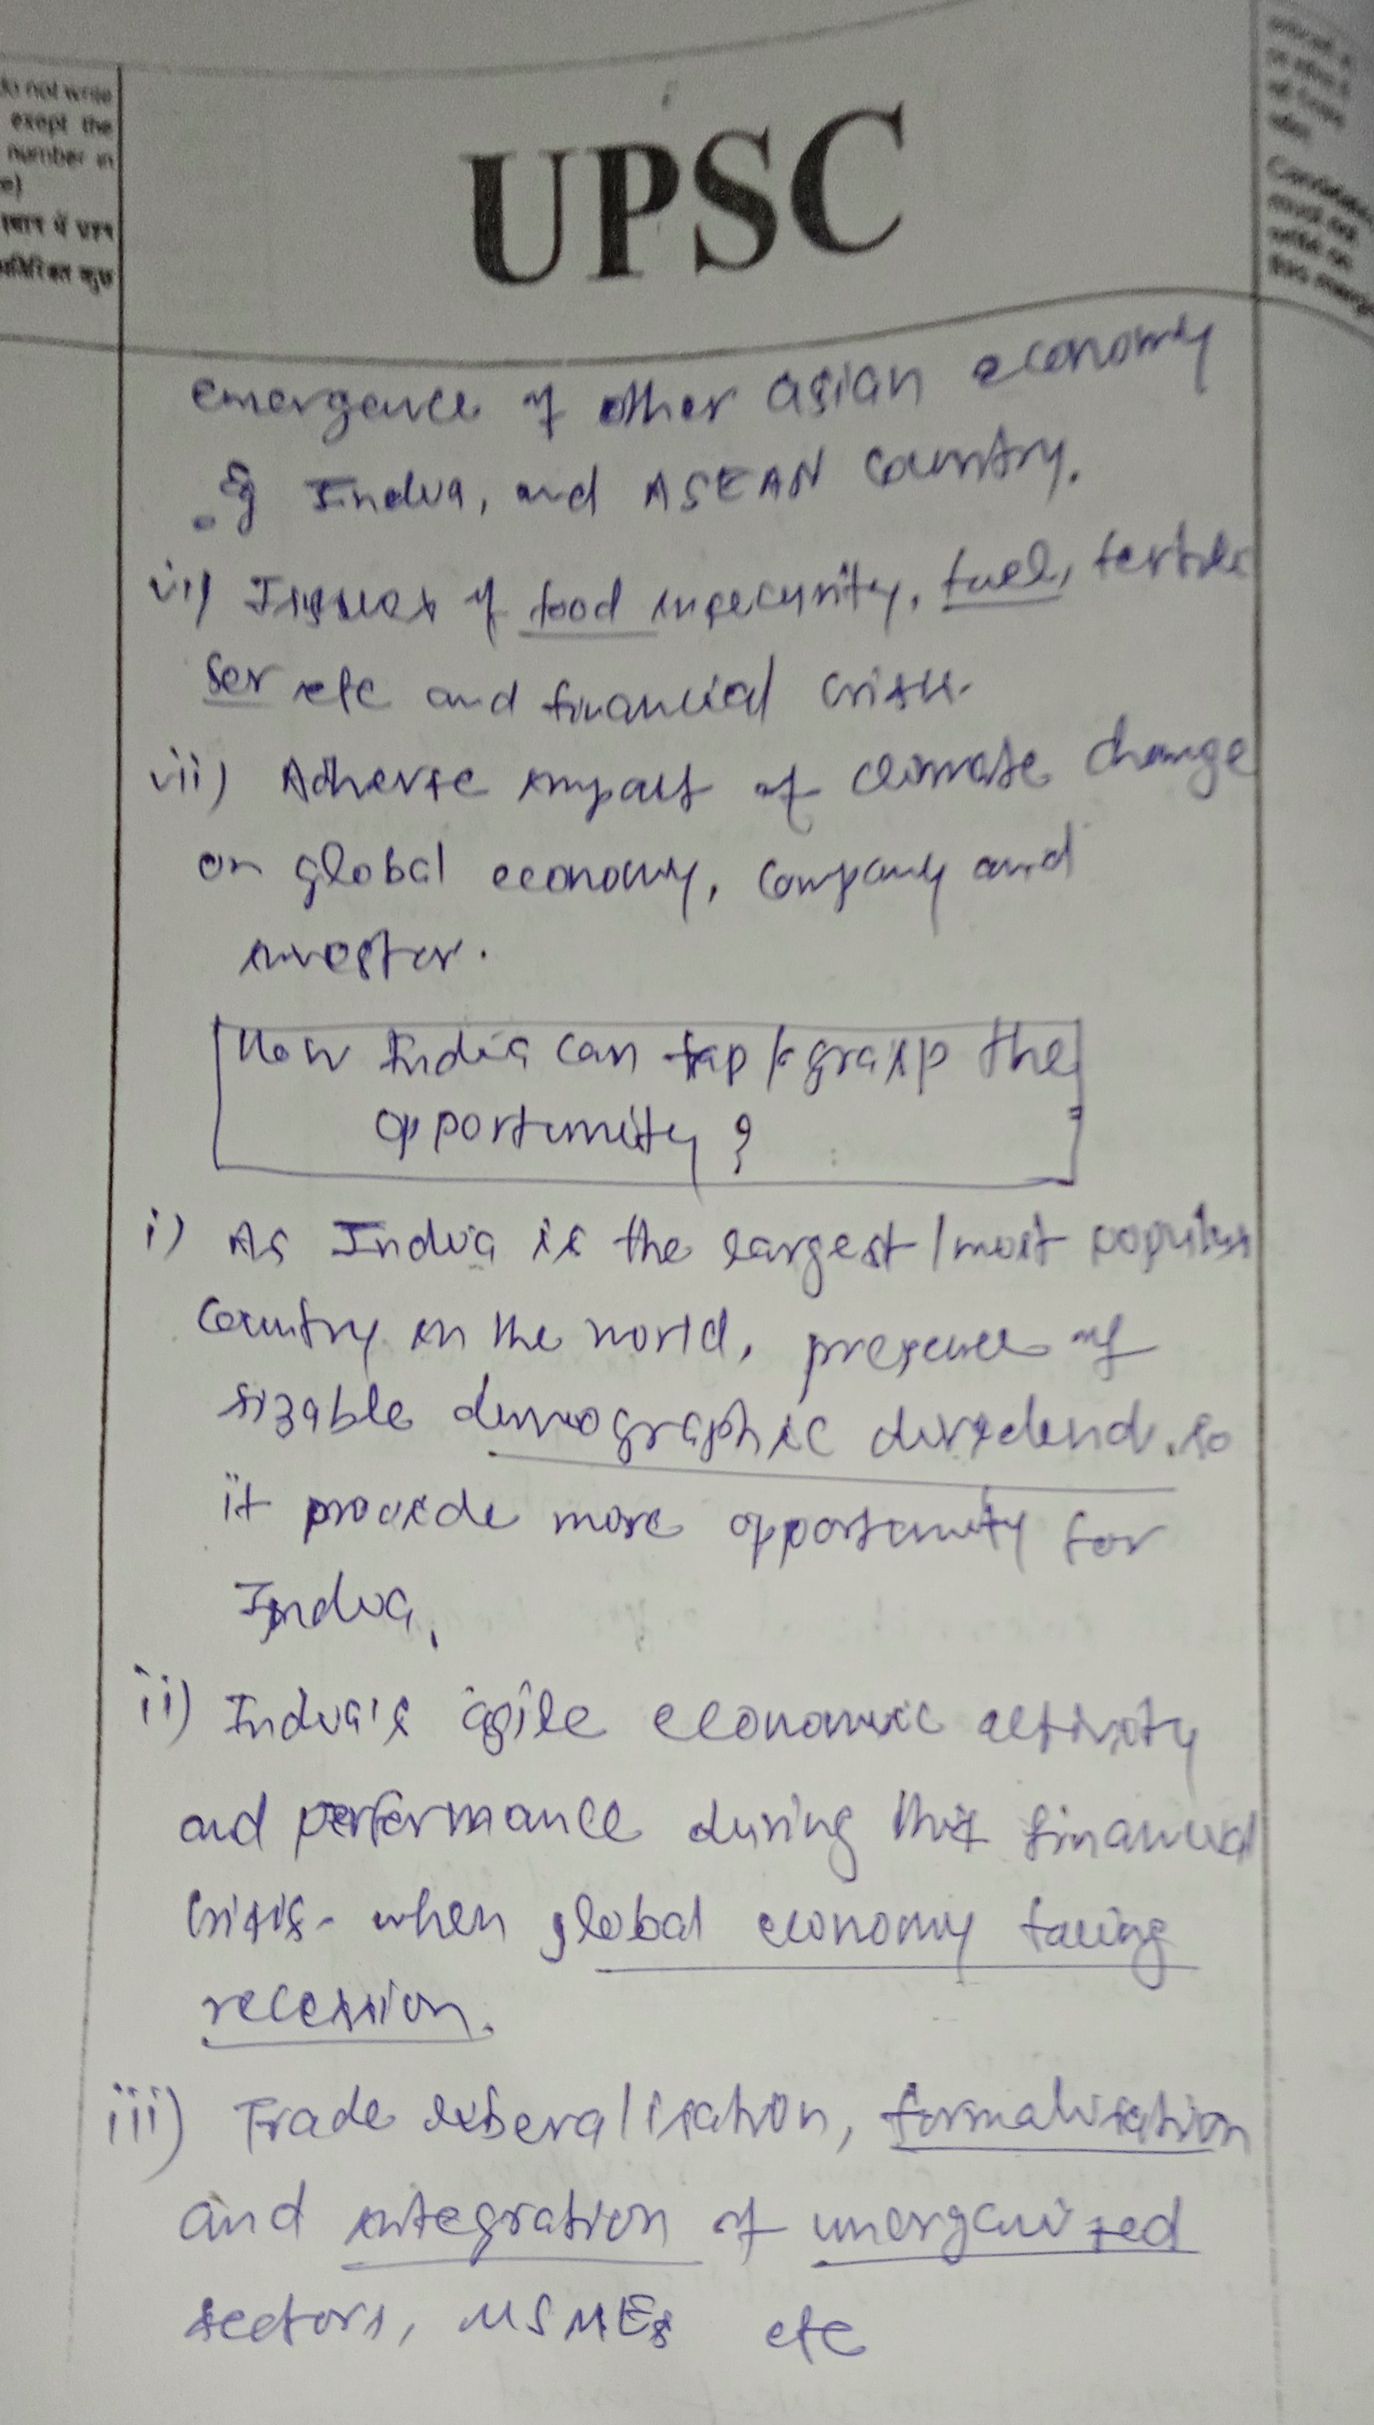 do not write
exept the
number in
UPSC
emergence of other asian economy
eg India, and ASEAN country.
vi) Issues of food insecurity, fuel, fertili
ser etc and financial crisis.
vii) Adverse impact of climate change
on global economy, company and
investor.
How India can tap / grasp the
opportunity ?
i) As India is the largest / most populus
country in the world, presence of
sizable demographic dividend. so
it provide more opportunity for
India.
ii) India's agile economic activity
and performance during this financial
crisis - when global economy facing
recession.
iii) Trade liberalisation, formalisation
and integration of unorganized
sectors, MSMEs etc